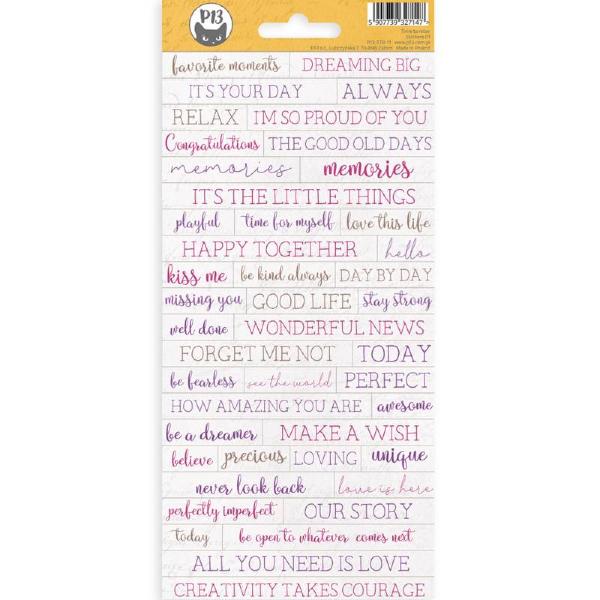 P13
5 907739 327147 >
favorite moments DREAMING BIG
IT'S YOUR DAY ALWAYS
RELAX I'M SO PROUD OF YOU
Congratulations THE GOOD OLD DAYS
memories memories
IT'S THE LITTLE THINGS
playful time for myself love this life
HAPPY TOGETHER hello
kiss me be kind always DAY BY DAY
missing you GOOD LIFE stay strong
well done WONDERFUL NEWS
FORGET ME NOT TODAY
be fearless see the world PERFECT
HOW AMAZING YOU ARE awesome
be a dreamer MAKE A WISH
believe precious LOVING unique
never look back love is here
perfectly imperfect OUR STORY
today be open to whatever comes next
ALL YOU NEED IS LOVE
CREATIVITY TAKES COURAGE